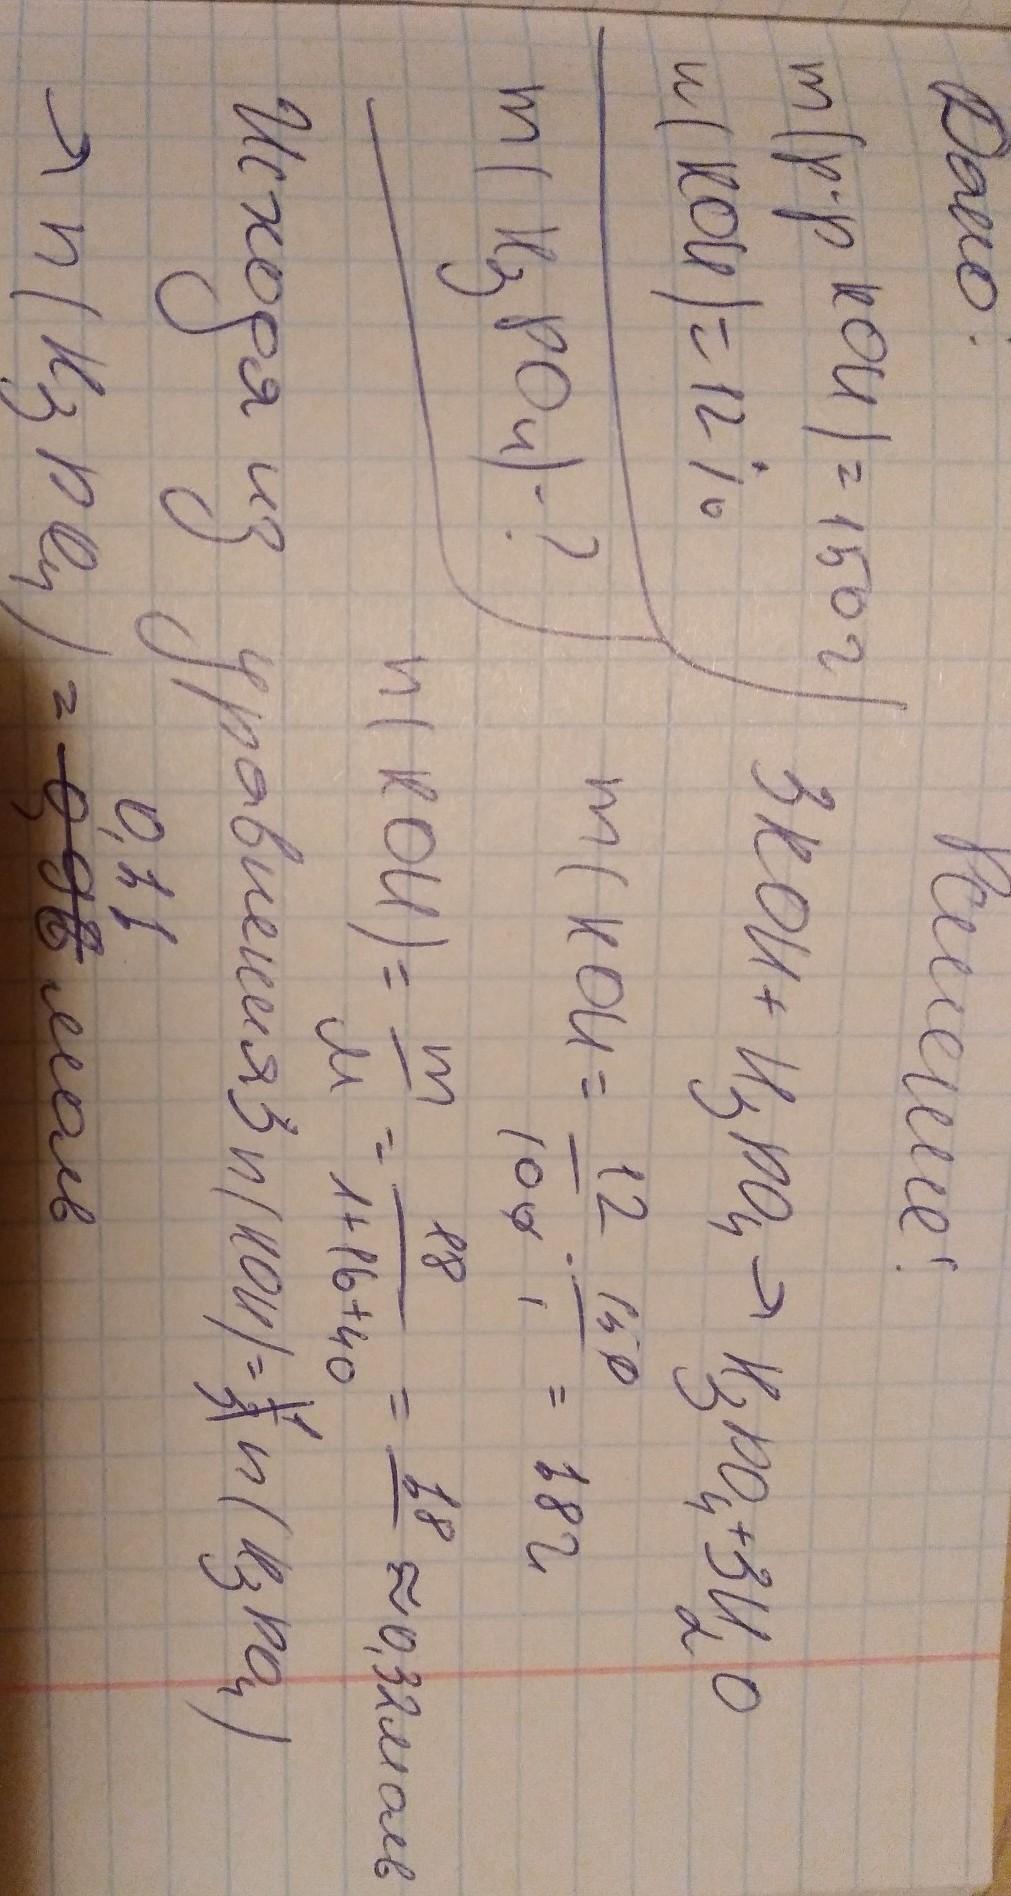 Дано: Решение:
m(р-р KOH)=150г
w(KOH)=12%
m(K3PO4)-?
3KOH+H3PO4→K3PO4+3H2O
m(KOH= 12/100 · 150/1 = 18г
n(KOH)= m/M = 18/1+16+40 = 18 ≈0,32моль
Исходя из уравнения 3n(KOH)= n(K3PO4)
→ n(K3PO4) = 0,11 моль